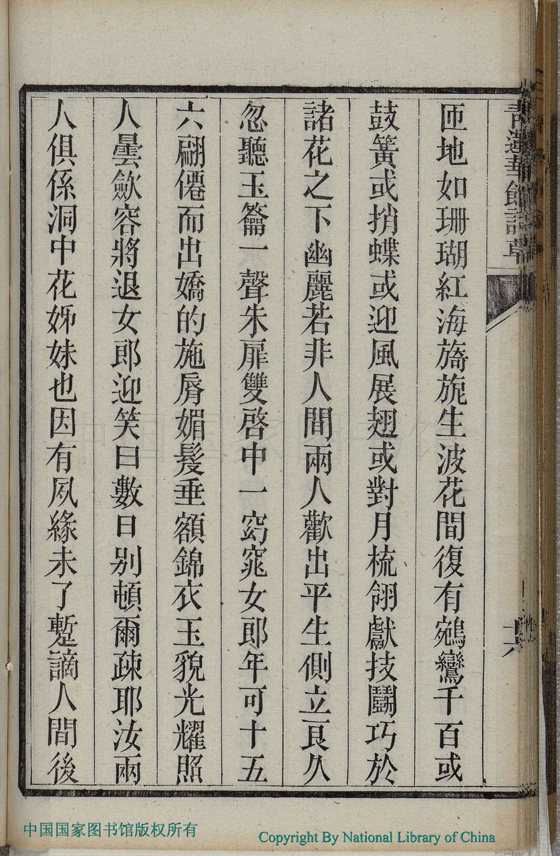 匝地如珊瑚紅海旖旎生波花間復有鵷鸞千百或
鼓簧或捎蝶或迎風展翅或對月梳翎獻技鬪巧於
諸花之下幽麗若非人間兩人歡出平生側立良久
忽聽玉籥一聲朱扉雙啓中一窈窕女郎年可十五
六翩僊而出嬌的施脣媚髮垂額錦衣玉貌光耀照
人曇歛容將退女郎迎笑曰數日別頓爾疎耶汝兩
人俱係洞中花姊妹也因有夙緣未了蹔謫人間後
中国国家图书馆版权所有
Copyright By National Library of China